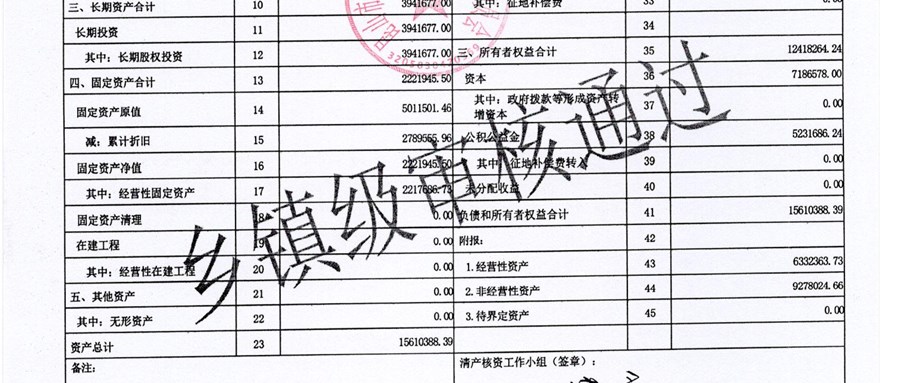 三、长期资产合计 10 3941677.00 其中：征地补偿费 33 0.00
长期投资 11 3941677.00 34
其中：长期股权投资 12 3941677.00 三、所有者权益合计 35 12418264.24
四、固定资产合计 13 2221945.50 资本 36 7186578.00
固定资产原值 14 5011501.46 其中：政府拨款等形成资产转增资本 37 0.00
减：累计折旧 15 2789555.96 公积公益金 38 5231686.24
固定资产净值 16 2221945.50 其中：征地补偿费转入 39 0.00
其中：经营性固定资产 17 2217686.73 未分配收益 40 0.00
固定资产清理 18 0.00 负债和所有者权益合计 41 15610388.39
在建工程 19 0.00 附报： 42
其中：经营性在建工程 20 0.00 1.经营性资产 43 6332363.73
五、其他资产 21 0.00 2.非经营性资产 44 9278024.66
其中：无形资产 22 0.00 3.待界定资产 45 0.00
资产总计 23 15610388.39
备注： 清产核资工作小组（签章）：
乡镇级审核通过